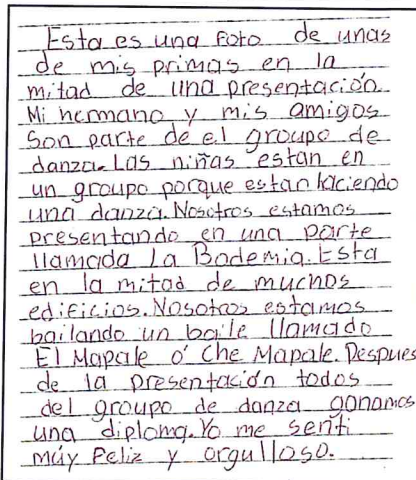 Esta es una foto de unas
de mis primas en la
mitad de una presentación.
Mi hermano y mis amigos
son parte de el groupo de
danza. Las niñas estan en
un groupo porque estan haciendo
una danza. Nosotros estamos
presentando en una parte
llamada La Bodemia. Esta
en la mitad de muchos
edificios. Nosotros estamos
bailando un baile llamado
El Mapale o' Che Mapale. Despues
de la presentación todos
del groupo de danza ganamos
una diploma. Yo me senti
múy feliz y orgulloso.